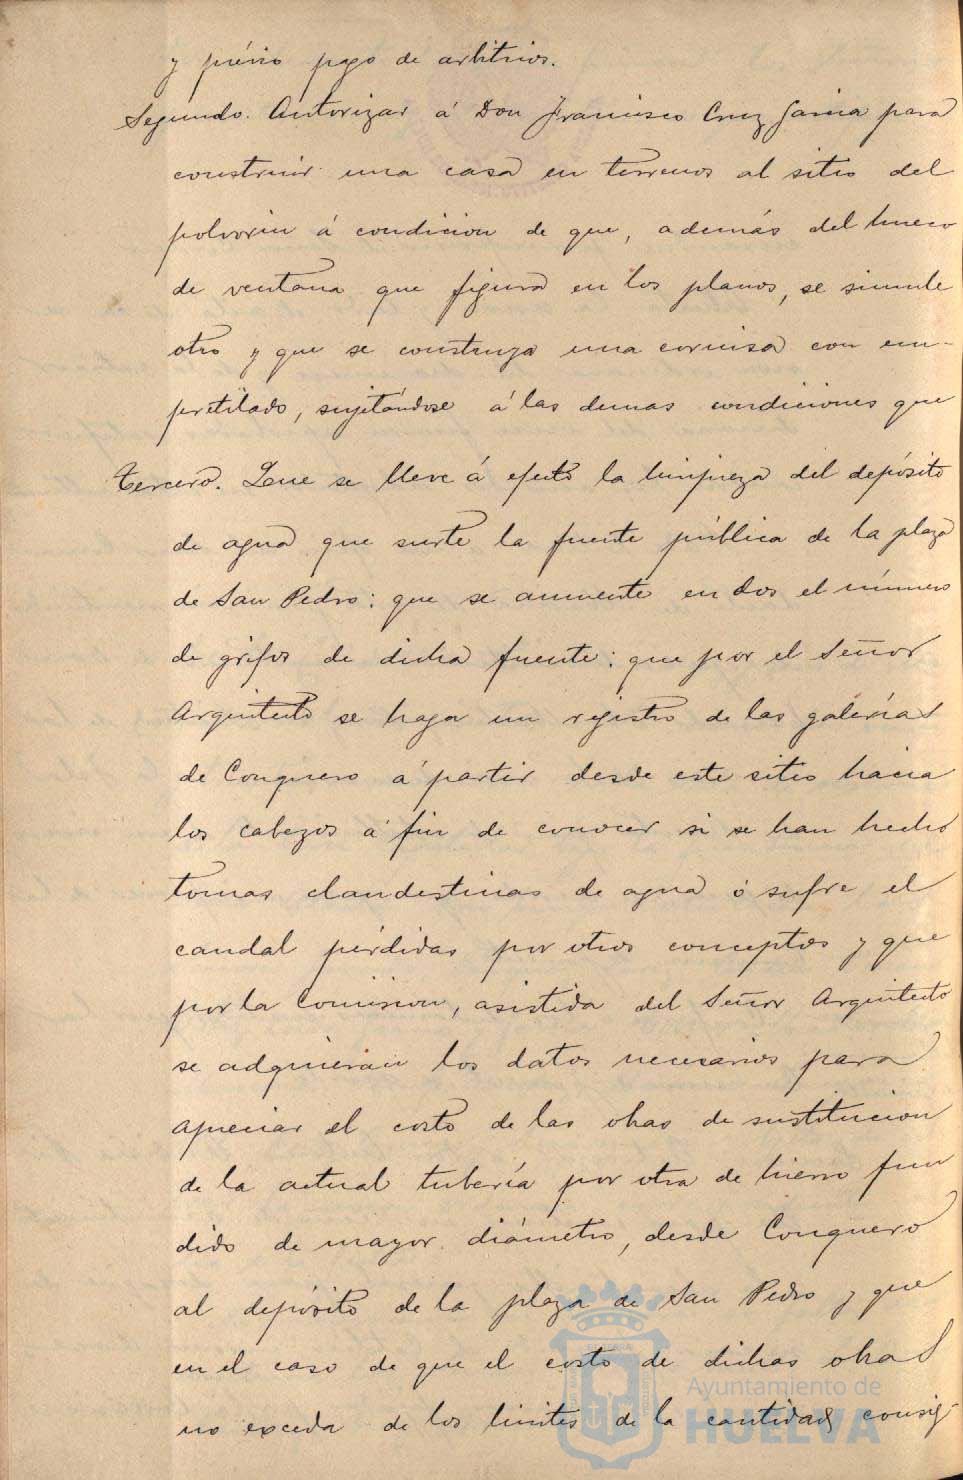 y prévio pago de arbitrios.
Segundo. Autorizar á Don Francisco Cruz Garcia para
construir una casa en terrenos al sitio del
polvorin á condicion de que, además del hueco
de ventana que figura en los planos, se simule
otro y que se construya una cornisa con em-
pretilado, sujetándose á las demas condiciones que
Tercero. Que se lleve á efecto la limpieza del depósito
de agua que surte la fuente pública de la plaza
de San Pedro: que se aumente en dos el número
de grifos de dicha fuente: que por el Señor
Arquitecto se haga un registro de las galerías
de Conquero á partir desde este sitio hacia
los cabezos á fin de conocer si se han hecho
tomas clandestinas de agua ó sufre el
caudal pérdidas por otros conceptos y que
por la Comision, asistida del Señor Arquitecto
se adquieran los datos necesarios para
apreciar el costo de las obras de sustitucion
de la actual tubería por otra de hierro fun
dido de mayor diámetro, desde Conquero
al depósito de la plaza de San Pedro y que
en el caso de que el costo de dichas obras
no exceda de los limites de la cantidad consig-
Ayuntamiento de
HUELVA